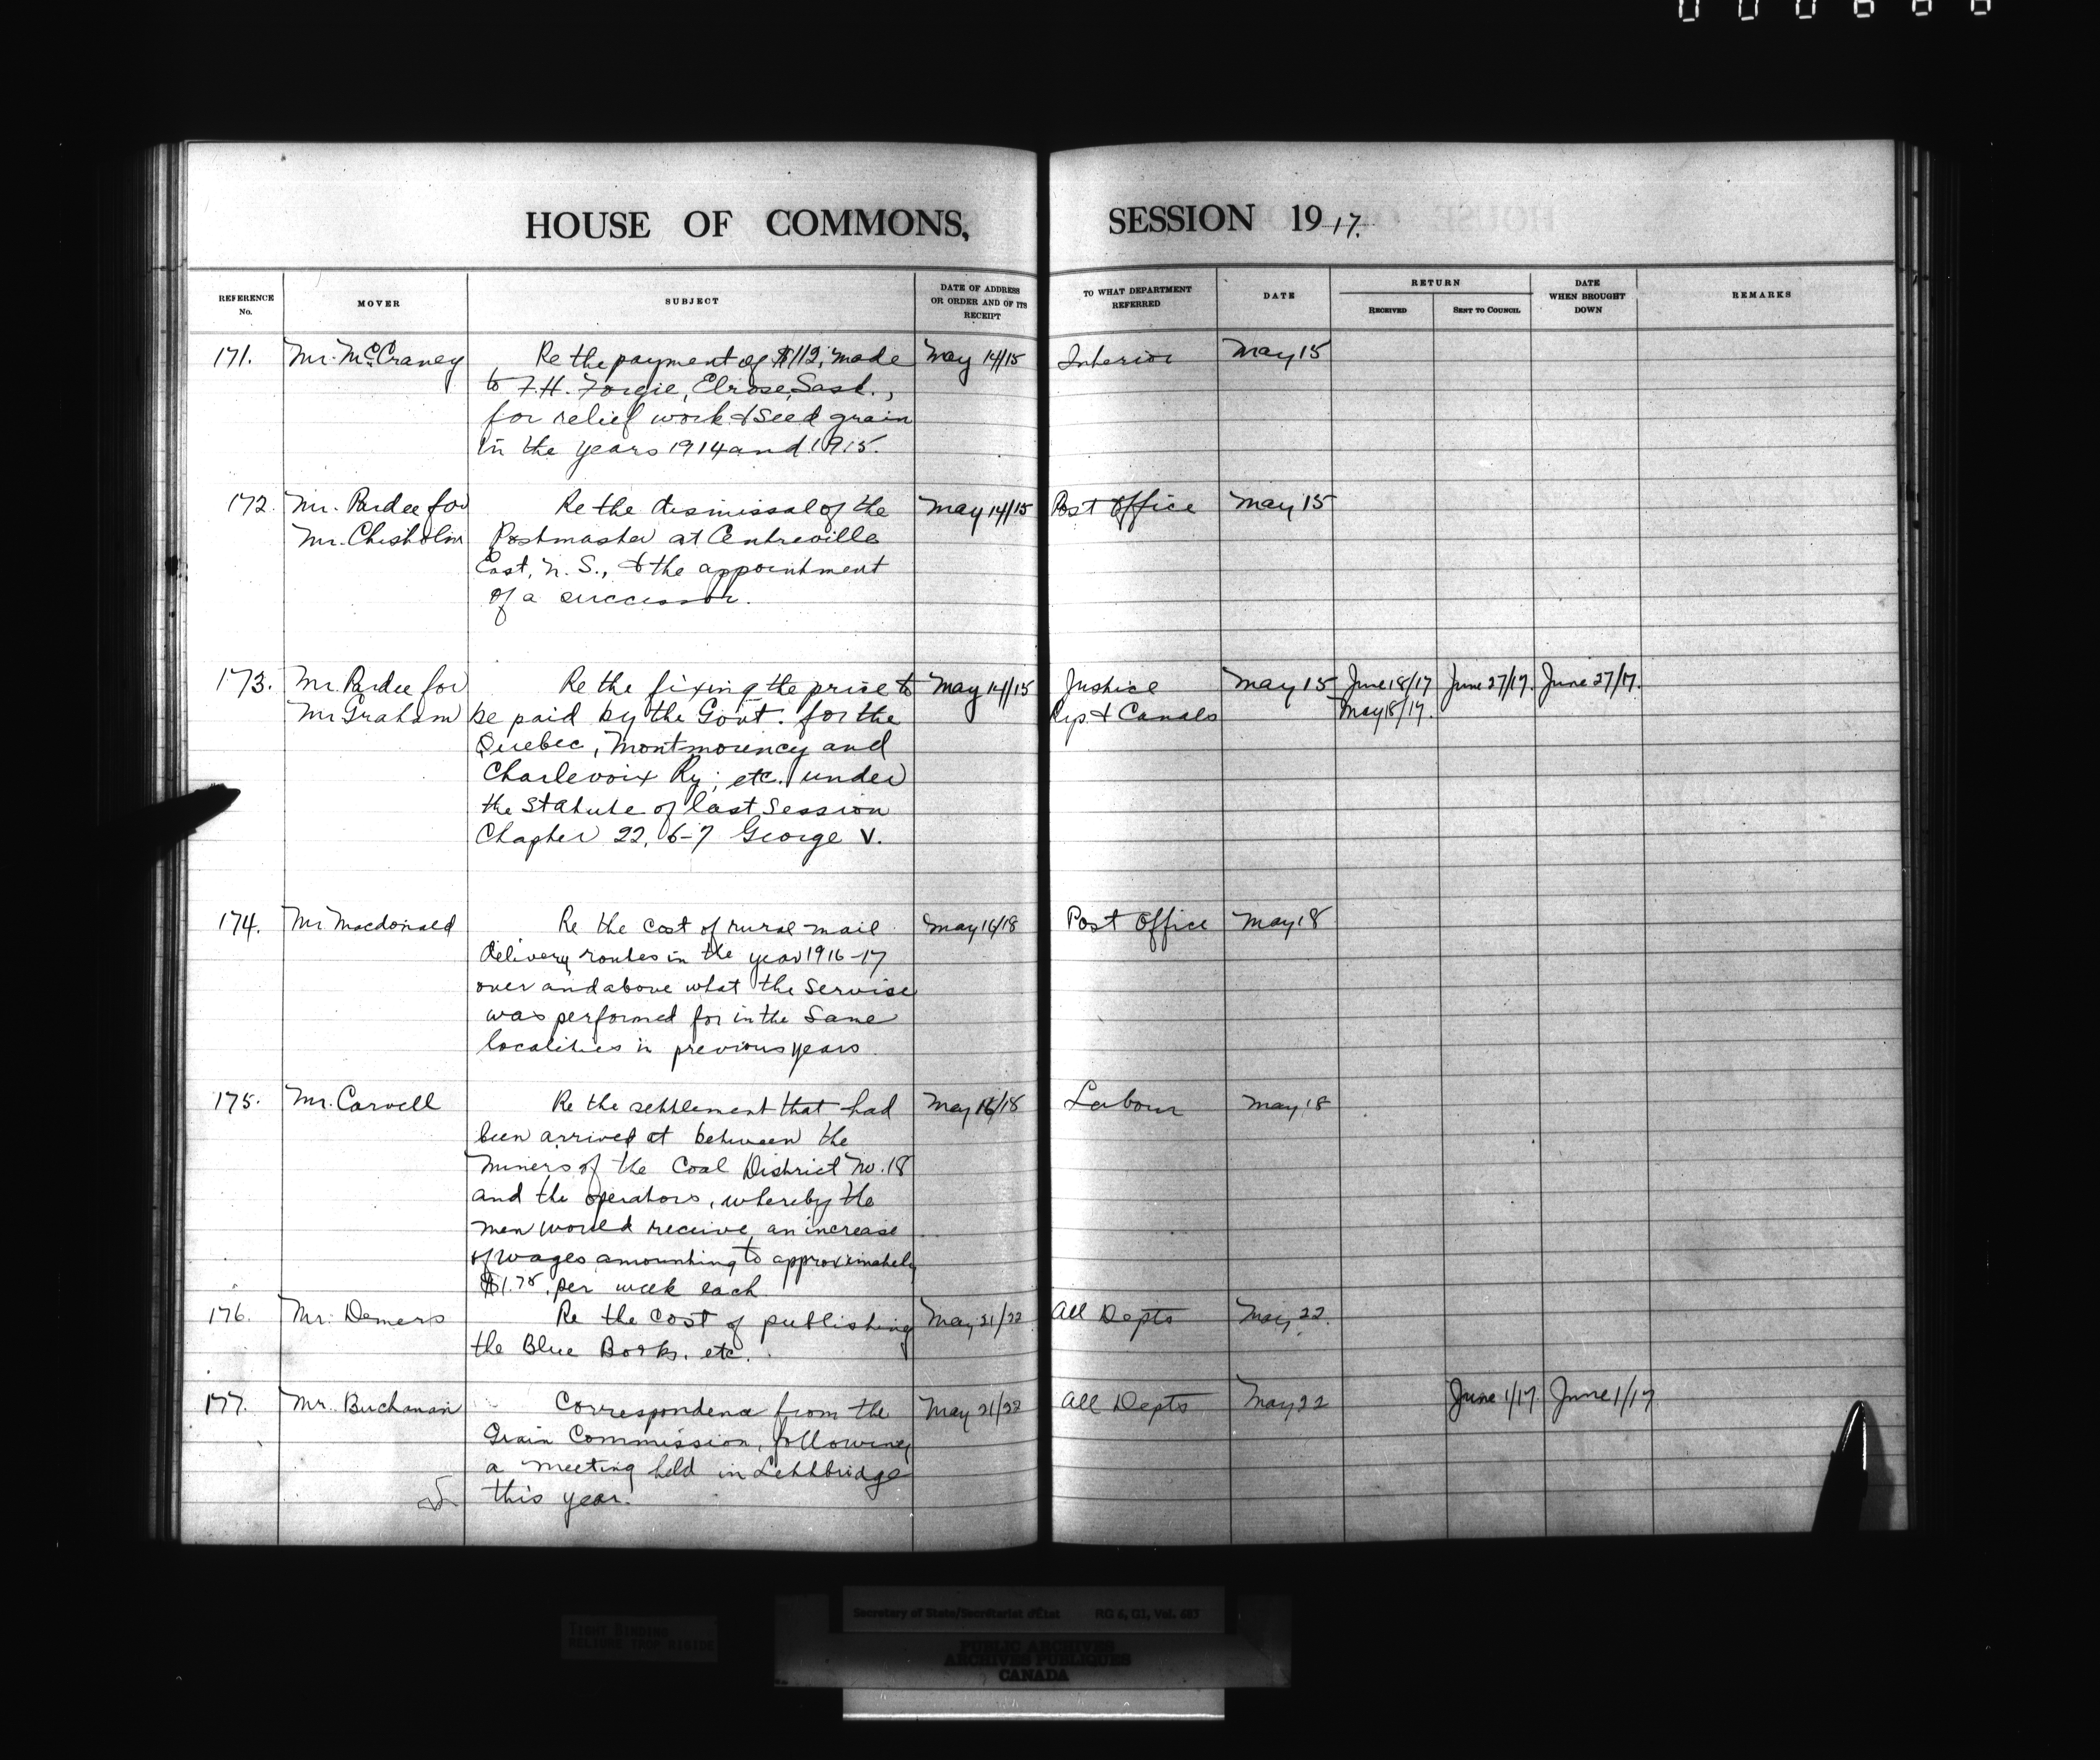 HOUSE OF COMMONS, SESSION 1917.
REFERENCE No. MOVER SUBJECT DATE OF ADDRESS OR ORDER AND OF ITS RECEIPT TO WHAT DEPARTMENT REFERRED DATE RETURN RECEIVED SENT TO COUNCIL DATE WHEN BROUGHT DOWN REMARKS
171. Mr. McCraney Re the payment of $112, made May 14/15 Interior May 15
to F.H. Forgie, Elrose, Sask.,
for relief work & seed grain
in the years 1914 and 1915.
172. Mr. Pardee for Re the dismissal of the May 14/15 Post Office May 15
Mr. Chisholm Postmaster at Centreville
East, N. S., & the appointment
of a successor.
173. Mr. Pardee for Re the fixing the price to May 14/15 Justice May 15 June 18/17 June 27/17. June 27/17.
Mr Graham be paid by the Govt. for the Rys. & Canals May 18/17.
Quebec, Montmorency and
Charlevoix Ry; etc. under
the Statute of last Session
Chapter 22, 6-7 George V.
174. Mr Macdonald Re the cost of rural mail May 16/18 Post Office May 18
delivery routes in the year 1916-17
over and above what the servise
was performed for in the same
localities in previous years.
175. Mr. Carvell Re the settlement that had May 16/18 Labour May 18
been arrived at between the
Miners of the Coal District No. 18
and the operators, whereby the
men would receive an increase
of wages amounting to approximately
$1.75 per week each
176. Mr. Demers Re the cost of publishing May 21/22 All Depts May 22.
the Blue Books, etc.
177. Mr. Buchanan Correspondence from the May 21/22 All Depts May 22 June 1/17. June 1/17
Grain Commission, following
a meeting held in Lethbridge
this year.
Secretary of State/Secrétariat d'État RG 6, G1, Vol. 683
TIGHT BINDING
RELIURE TROP RIGIDE
PUBLIC ARCHIVES
ARCHIVES PUBLIQUES
CANADA